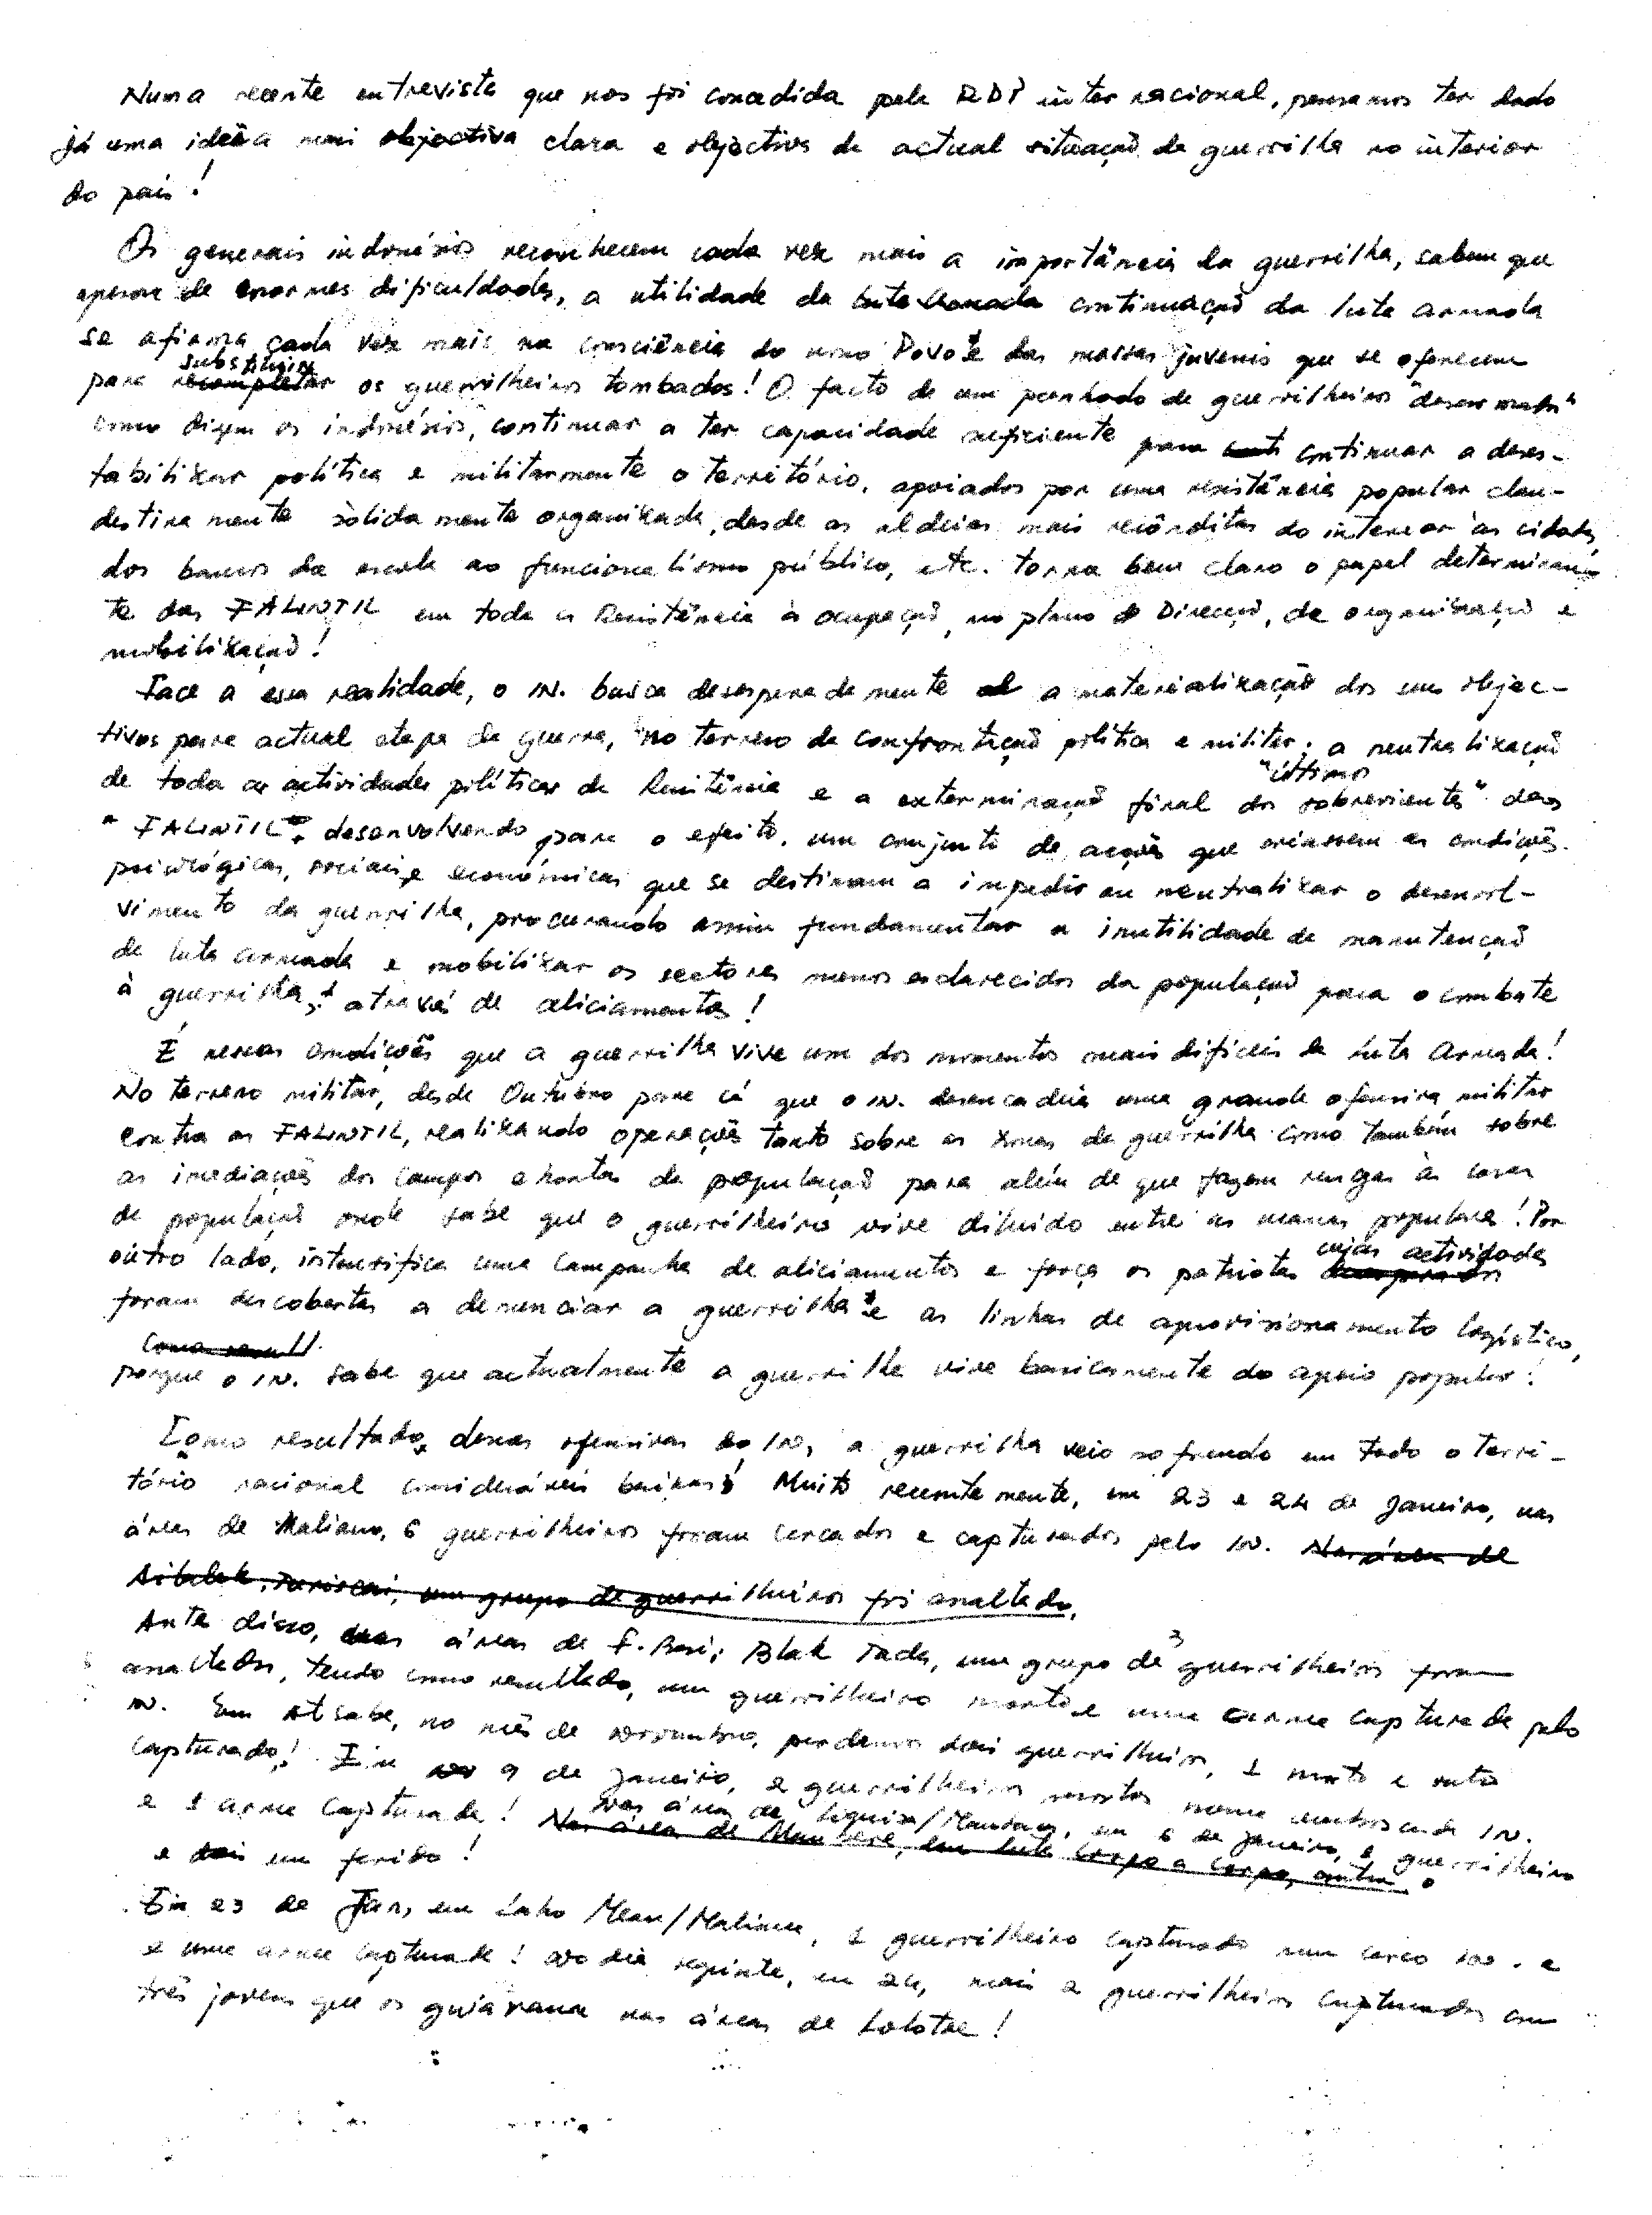 Numa recente entrevista que nos foi concedida pela RDP internacional, pensamos ter dado
já uma ideia mais objectiva clara e objectiva da actual situação da guerrilha no interior
do país!
Os generais indonésios reconhecem cada vez mais a importância da guerrilha, sabem que
apesar de enormes dificuldades, a utilidade da luta armada continuação da luta armada
se afirma cada vez mais na consciência do nosso Povo e das massas juvenis que se oferecem
substituir
para recompletar os guerrilheiros tombados! O facto de um punhado de guerrilheiros "desarmados"
como dizem os indonésios, continuar a ter capacidade suficiente para conti continuar a deses-
tabilizar política e militarmente o território, apoiados por uma resistência popular clan-
destinamente sòlidamente organizada, desde as aldeias mais recônditas do interior às cidades,
dos bancos da escola ao funcionalismo público, etc. torna bem claro o papel determinan-
te das FALINTIL em toda a Resistência à ocupação, no plano de Direcção, de organização e
mobilização!
Face a essa realidade, o IN. busca desesperadamente a materialização dos seus objec-
tivos para actual etapa da guerra, no terreno da confrontação política e militar: a neutralização
"últimos
de toda as actividades políticas da Resistência e a exterminação final dos sobreviventes" das
"FALINTIL" desenvolvendo para o efeito, um conjunto de acções que criassem as condições
psicológicas, sociais e económicas que se destinam a impedir ou neutralizar o desenvol-
vimento da guerrilha, procurando assim fundamentar a inutilidade da manutenção
da luta armada e mobilizar os sectores menos esclarecidos da população para o combate
à guerrilha, através de aliciamentos!
É nessas condições que a guerrilha vive um dos momentos mais difíceis da Luta Armada!
No terreno militar, desde Outubro para cá que o IN. desencadeia uma grande ofensiva militar
contra as FALINTIL, realizando operações tanto sobre as zonas da guerrilha como também sobre
as imediações dos campos e hortas da população para além de que fazem rusgas às casas
da população onde sabe que o guerrilheiro vive diluído entre as massas populares! Por
cujas actividades
outro lado, intensifica uma campanha de aliciamentos e força os patriotas
foram descobertas a denunciar a guerrilha e as linhas de aprovisionamento logístico,
Como result
porque o IN. sabe que actualmente a guerrilha vive basicamente do apoio popular!
Como resultado, dessas ofensivas do IN, a guerrilha veio sofrendo em todo o terri-
tório nacional consideráveis baixas! Muito recentemente, em 23 e 24 de Janeiro, nas
áreas de Maliana, 6 guerrilheiros foram cercados e capturados pelo IN. Nas áreas de
um grupo de guerrilheiros foi assaltado,
Ante disso, áreas de F. Besi, Blak Tada, um grupo de 3 guerrilheiros foram
assaltados, tendo como resultado, um guerrilheiro morto e uma arma capturada pelo
IN. Em Atsabe, no mês de novembro, perdemos dois guerrilheiros, 1 morto e outro
capturado! Em 9 de Janeiro, 2 guerrilheiros mortos numa emboscada IN.
nas áreas de Liquisa/Maubara, em 6 de Janeiro, 1 guerrilheiro
e 1 arma capturada! Na área de Maubere, em luta corpo a corpo, outro
e dois um ferido!
Em 23 de Jan, em Laho Mean/Maliana, 1 guerrilheiro capturado num cerco IN. e
e uma arma capturada! No dia seguinte, em 24, mais 2 guerrilheiros capturados com
três jovens que os guiavam nas áreas de Lolotoe!